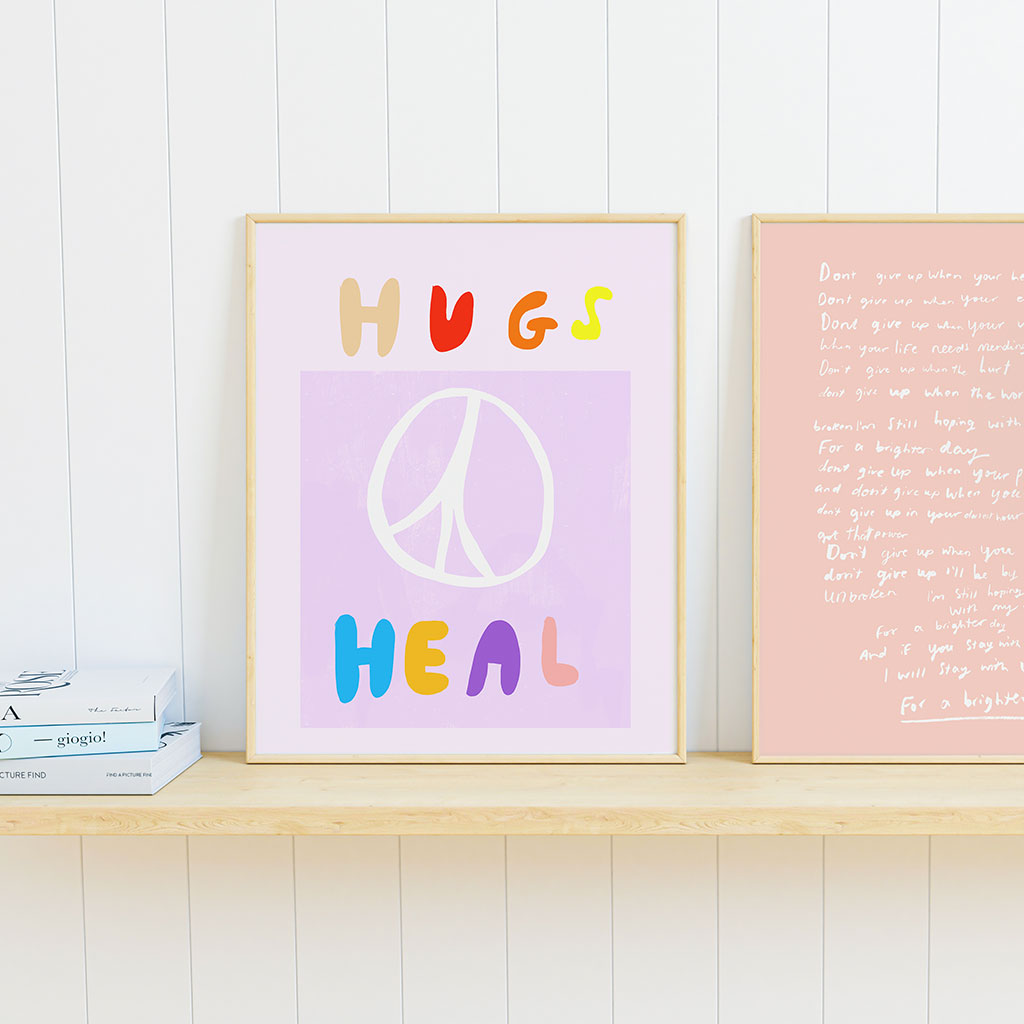 HUGS
HEAL
A
The Factor
— giogio!
CTURE FIND
FIND A PICTURE FIN
Dont give up when your he
Dont give up when your
Dont give up when your
When your life needs mending
Don't give up when the hurt
dont give up when the wor
broken I'm still hoping with
For a brighter day
dont give up when your
and don't give up when you
don't give up in your hour
got that power
Don't give up when you
don't give up I'll be by
Unbroken I'm still hoping
with my
for a brighter day
And if you stay with
I will stay with
For a brighter